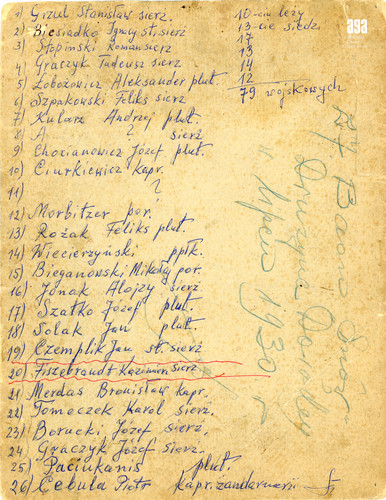 1) Gizul Stanisław sierz.
2) Biesiadko Ignacy st. sierż
3) Stopinski Roman sierz
4) Graczyk Tadeusz sierz
5) Łobozewicz Aleksander plut.
6) Szpakowski Feliks sierz
7) Kularz Andrzej plut.
8) A. ? sierż
9) Chocianowicz Józef plut.
10) Ciurkiewicz kapr.
11) ?
12) Morbitzer por.
13) Rożak Feliks plut.
14) Wiecierzyński ppłk.
15) Bieganowski Mikołaj por.
16) Jónak Alojzy sierż
17) Szatko Józef plut.
18) Solak Jan plut.
19) Czemplik Jan st. sierż
20) Fiszebrandt Kazimierz sierz
21) Merdas Bronisław kapr.
22) Tomoczek Karol sierż.
23) Borucki Józef sierz.
24) Graczyk Józef sierz.
25) Paciukanis plut.
26) Cebula Piotr kapr. zandarmerii
10-ciu leży
13-cie siedzi
17
13
14
12
79 wojskowych
Drużyna
Lipiec 1930 r
aga